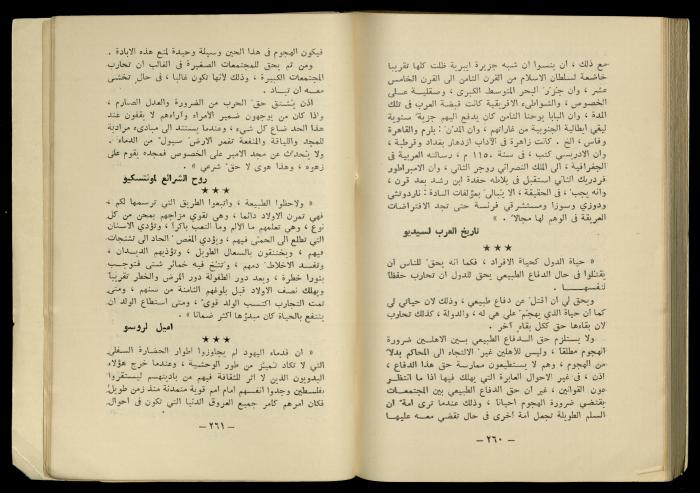 مع ذلك ، ان ينسوا ان شبه جزيرة ايبرية ظلت كلها تقريبا
خاضعة لسلطان الاسلام من القرن الثامن الى القرن الخامس
عشر ، وان جزر البحر المتوسط الكبرى ، وصقلية على
الخصوص ، والشواطىء الافريقية كانت قبضة العرب في تلك
المدة ، وان البابا يوحنا الثامن كان يدفع اليهم جزية سنوية
ليقي ايطالية الجنوبية من غاراتهم ، وان المدن : بلرم والقاهرة
وفاس ، الخ . كانت زاهرة في الآداب ازدهار بغداد وقرطبة ،
وان الادريسي كتب ، في سنة ١١٥٠ م ، رسالته العربية في
الجغرافية ، الى الملك النصراني روجر الثاني ، وان الامبراطور
فردريك الثاني استقبل في بلاطه حفدة ابن رشد بعد قرن ،
وانه يجب ، في الحقيقة ، الا يبالى بمؤلفات السادة : ناردوتشي
ودوزي وسوزا ومستشرقي فرنسة حتى تجد الافتراضات
العريقة في الوهم لها مجالا . »
تاريخ العرب لسيديو
★ ★ ★
« حياة الدول كحياة الافراد ، فكما انه يحق للناس ان
يقتلوا في حال الدفاع الطبيعي يحق للدول ان تحارب حفظا
لنفسها .
ويحق لي ان اقتل عن دفاع طبيعي ، وذلك لان حياتي لي
كما ان حياة الذي يهجم علي هي له ، والدولة ، كذلك تحارب
لان بقاءها حق ككل بقاء آخر .
ولا يستلزم حق الدفاع الطبيعي بين الاهلين ضرورة
الهجوم مطلقا ، وليس للأهلين غير الالتجاء الى المحاكم بدلا
من الهجوم ، وهم لا يستطيعون ممارسة حق هذا الدفاع ،
اذن ، في غير الاحوال العابرة التي يهلك فيها اذا ما انتظر
عون القوانين ، غير ان حق الدفاع الطبيعي بين المجتمعات
يقتضي ضرورة الهجوم احيانا ، وذلك عندما ترى امة ان
السلم الطويلة تجعل امة أخرى في حال تقضي معه عليها
— ٢٦٠ —
فيكون الهجوم في هذا الحين وسيلة وحيدة لمنع هذه الابادة .
ومن ثم يحق للمجتمعات الصغيرة في الغالب ان تحارب
المجتمعات الكبيرة ، وذلك لانها تكون غالبا ، في حال تخشى
معه ان تباد .
اذن يشتق حق الحرب من الضرورة والعدل الصارم ،
واذا كان من يوجهون ضمير الامراء وآراءهم لا يقفون عند
هذا الحد ضاع كل شيء ، وعندما يستند الى مبادىء مرادية
للمجد واللياقة والمنفعة تغمر الارض سيول من الدماء .
ولا يتحدث عن مجد الامير على الخصوص فمجده يقوم على
زهوه ، وهذا هوى لا حق شرعي » .
روح الشرائع لمونتسكيو
★ ★ ★
« ولاحظوا الطبيعة ، واتبعوا الطريق التي ترسمها لكم ،
فهي تمرن الاولاد دائما ، وهي تقوي مزاجهم بمحن من كل
نوع ، وهي تعلمهم ما الالم وما التعب باكرا ، وتؤدي الاسنان
التي تطلع الى الحمى فيهم ، ويؤدي المغص الحاد الى تشنجات
فيهم ، ويختنقون بالسعال الطويل ، وتؤذيهم الديدان ،
وتفسد الاخلاط دمهم ، وتنتج فيه خمائر شتى فتوجب
بثورا خطرة ، وبعد دور الطفولة دور المرض والخطر تقريبا
ويهلك نصف الاولاد قبل بلوغهم الثامنة من سنهم ، ومتى
تمت التجارب اكتسب الولد قوى ، ومتى استطاع الولد ان
ينتفع بالحياة كان مبدؤها اكثر ضمانا » .
اميل لروسو
★ ★ ★
« ان قدماء اليهود لم يجاوزوا اطوار الحضارة السفلى
التي لا تكاد تميز من طور الوحشية ، وعندما خرج هؤلاء
البدويون الذين لا اثر للثقافة فيهم من باديتهم ليستقروا
بفلسطين وجدوا انفسهم امام امم قوية متمدنة منذ زمن طويل
فكان امرهم كامر جميع العروق الدنيا التي تكون في احوال
— ٢٦١ —